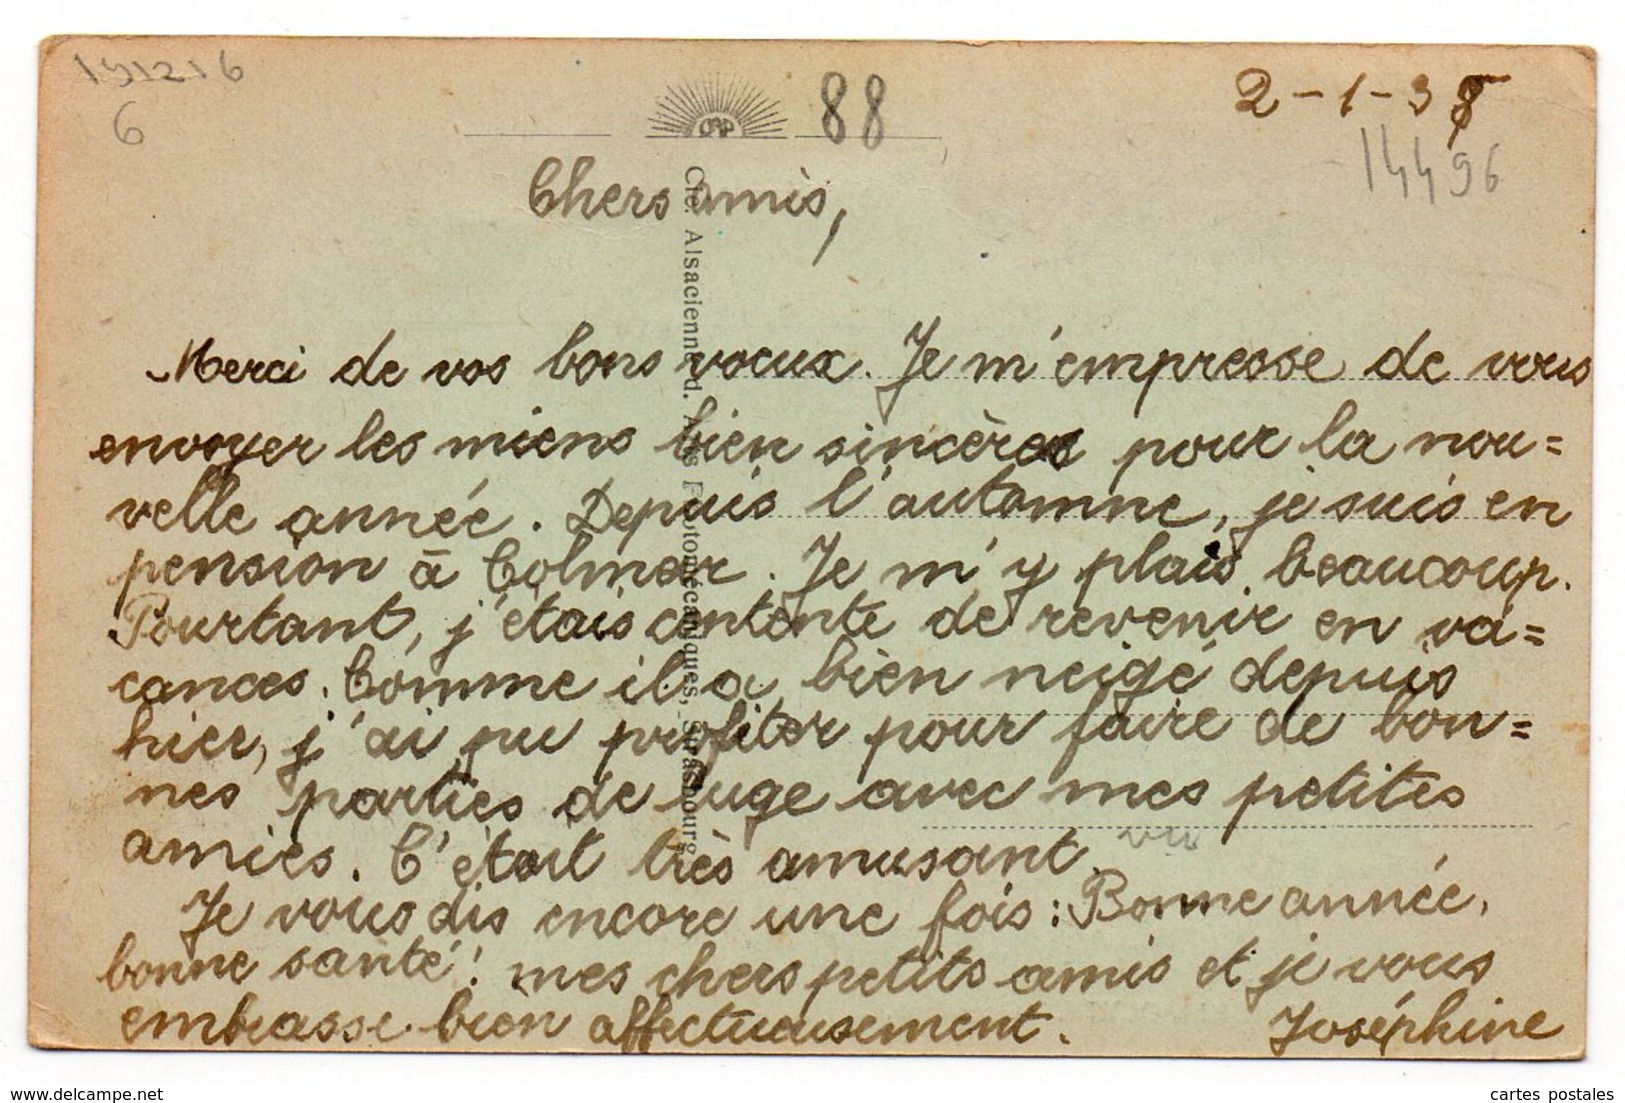 191216
6
88
2-1-38
14496
Chers amis,
Cie. Alsacienne d. Arts Photomécaniques, Strasbourg
Merci de vos bons voeux. Je m'empresse de vous
envoyer les miens bien sincères pour la nou=
velle année. Depuis l'automne, je suis en
pension à Colmar. Je m'y plais beaucoup.
Pourtant, j'étais contente de revenir en va=
cances. Comme il a bien neigé depuis
hier, j'ai pu profiter pour faire de bon=
nes parties de luge avec mes petites
amies. C'était très amusant.
vu
Je vous dis encore une fois: Bonne année,
bonne santé! mes chers petits amis et je vous
embrasse bien affectueusement.
Joséphine
delcampe.net
cartes postales